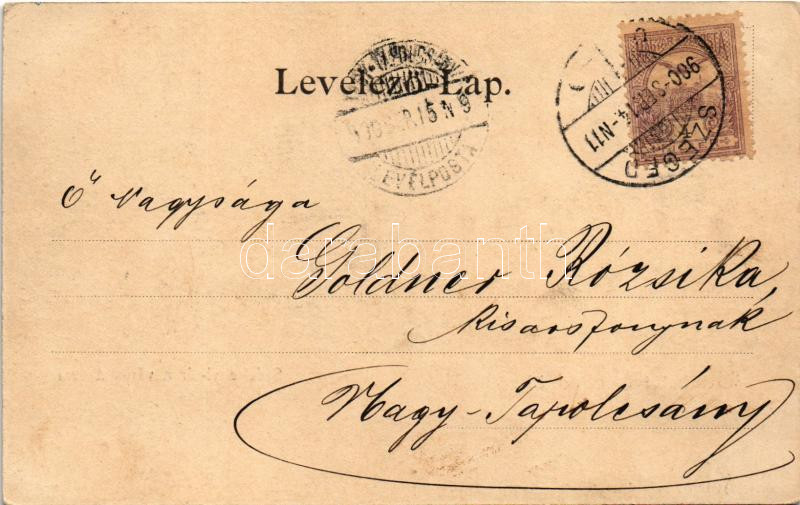 Levelező-Lap.
SZEGED
900 SEP. 14 N11
LEVÉLPOSTA
Ő Nagysága
Goldner Rózsika
kisasszonynak
Nagy-Tapolcsány
darabanth